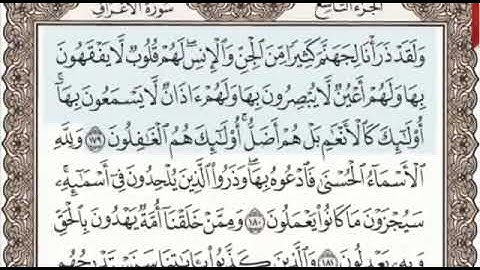 سورة الأعراف الجزء التاسع
وَلَقَدْ ذَرَأْنَا لِجَهَنَّمَ كَثِيرًا مِّنَ ٱلْجِنِّ وَٱلْإِنسِ ۖ لَهُمْ قُلُوبٌ لَّا يَفْقَهُونَ
بِهَا وَلَهُمْ أَعْيُنٌ لَّا يُبْصِرُونَ بِهَا وَلَهُمْ ءَاذَانٌ لَّا يَسْمَعُونَ بِهَآ ۚ
أُو۟لَـٰٓئِكَ كَٱلْأَنْعَـٰمِ بَلْ هُمْ أَضَلُّ ۚ أُو۟لَـٰٓئِكَ هُمُ ٱلْغَـٰفِلُونَ ١٧٩ وَلِلَّهِ
ٱلْأَسْمَآءُ ٱلْحُسْنَىٰ فَٱدْعُوهُ بِهَا ۖ وَذَرُوا۟ ٱلَّذِينَ يُلْحِدُونَ فِىٓ أَسْمَـٰٓئِهِۦ ۚ
سَيُجْزَوْنَ مَا كَانُوا۟ يَعْمَلُونَ ١٨٠ وَمِمَّنْ خَلَقْنَآ أُمَّةٌ يَهْدُونَ بِٱلْحَقِّ
وَبِهِۦ يَعْدِلُونَ ١٨١ وَٱلَّذِينَ كَذَّبُوا۟ بِـَٔايَـٰتِنَا سَنَسْتَدْرِجُهُم